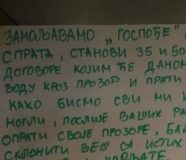 ЗАМОЉАВАМО „ГОСПОЂЕ"
СПРАТА, СТАНОВИ 35 И
ДОГОВОРЕ КОЈИМ ЋЕ ДАНОМ
ВОДУ КРОЗ ПРОЗОР И ПРАТИ
КАКО БИСМО СВИ МИ
МОГЛИ, ПОСЛИЈЕ ВАШИХ
ОПРАТИ СВОЈЕ ПРОЗОРЕ,
СКЛОНИТИ ВЕШ СА ИСТИХ